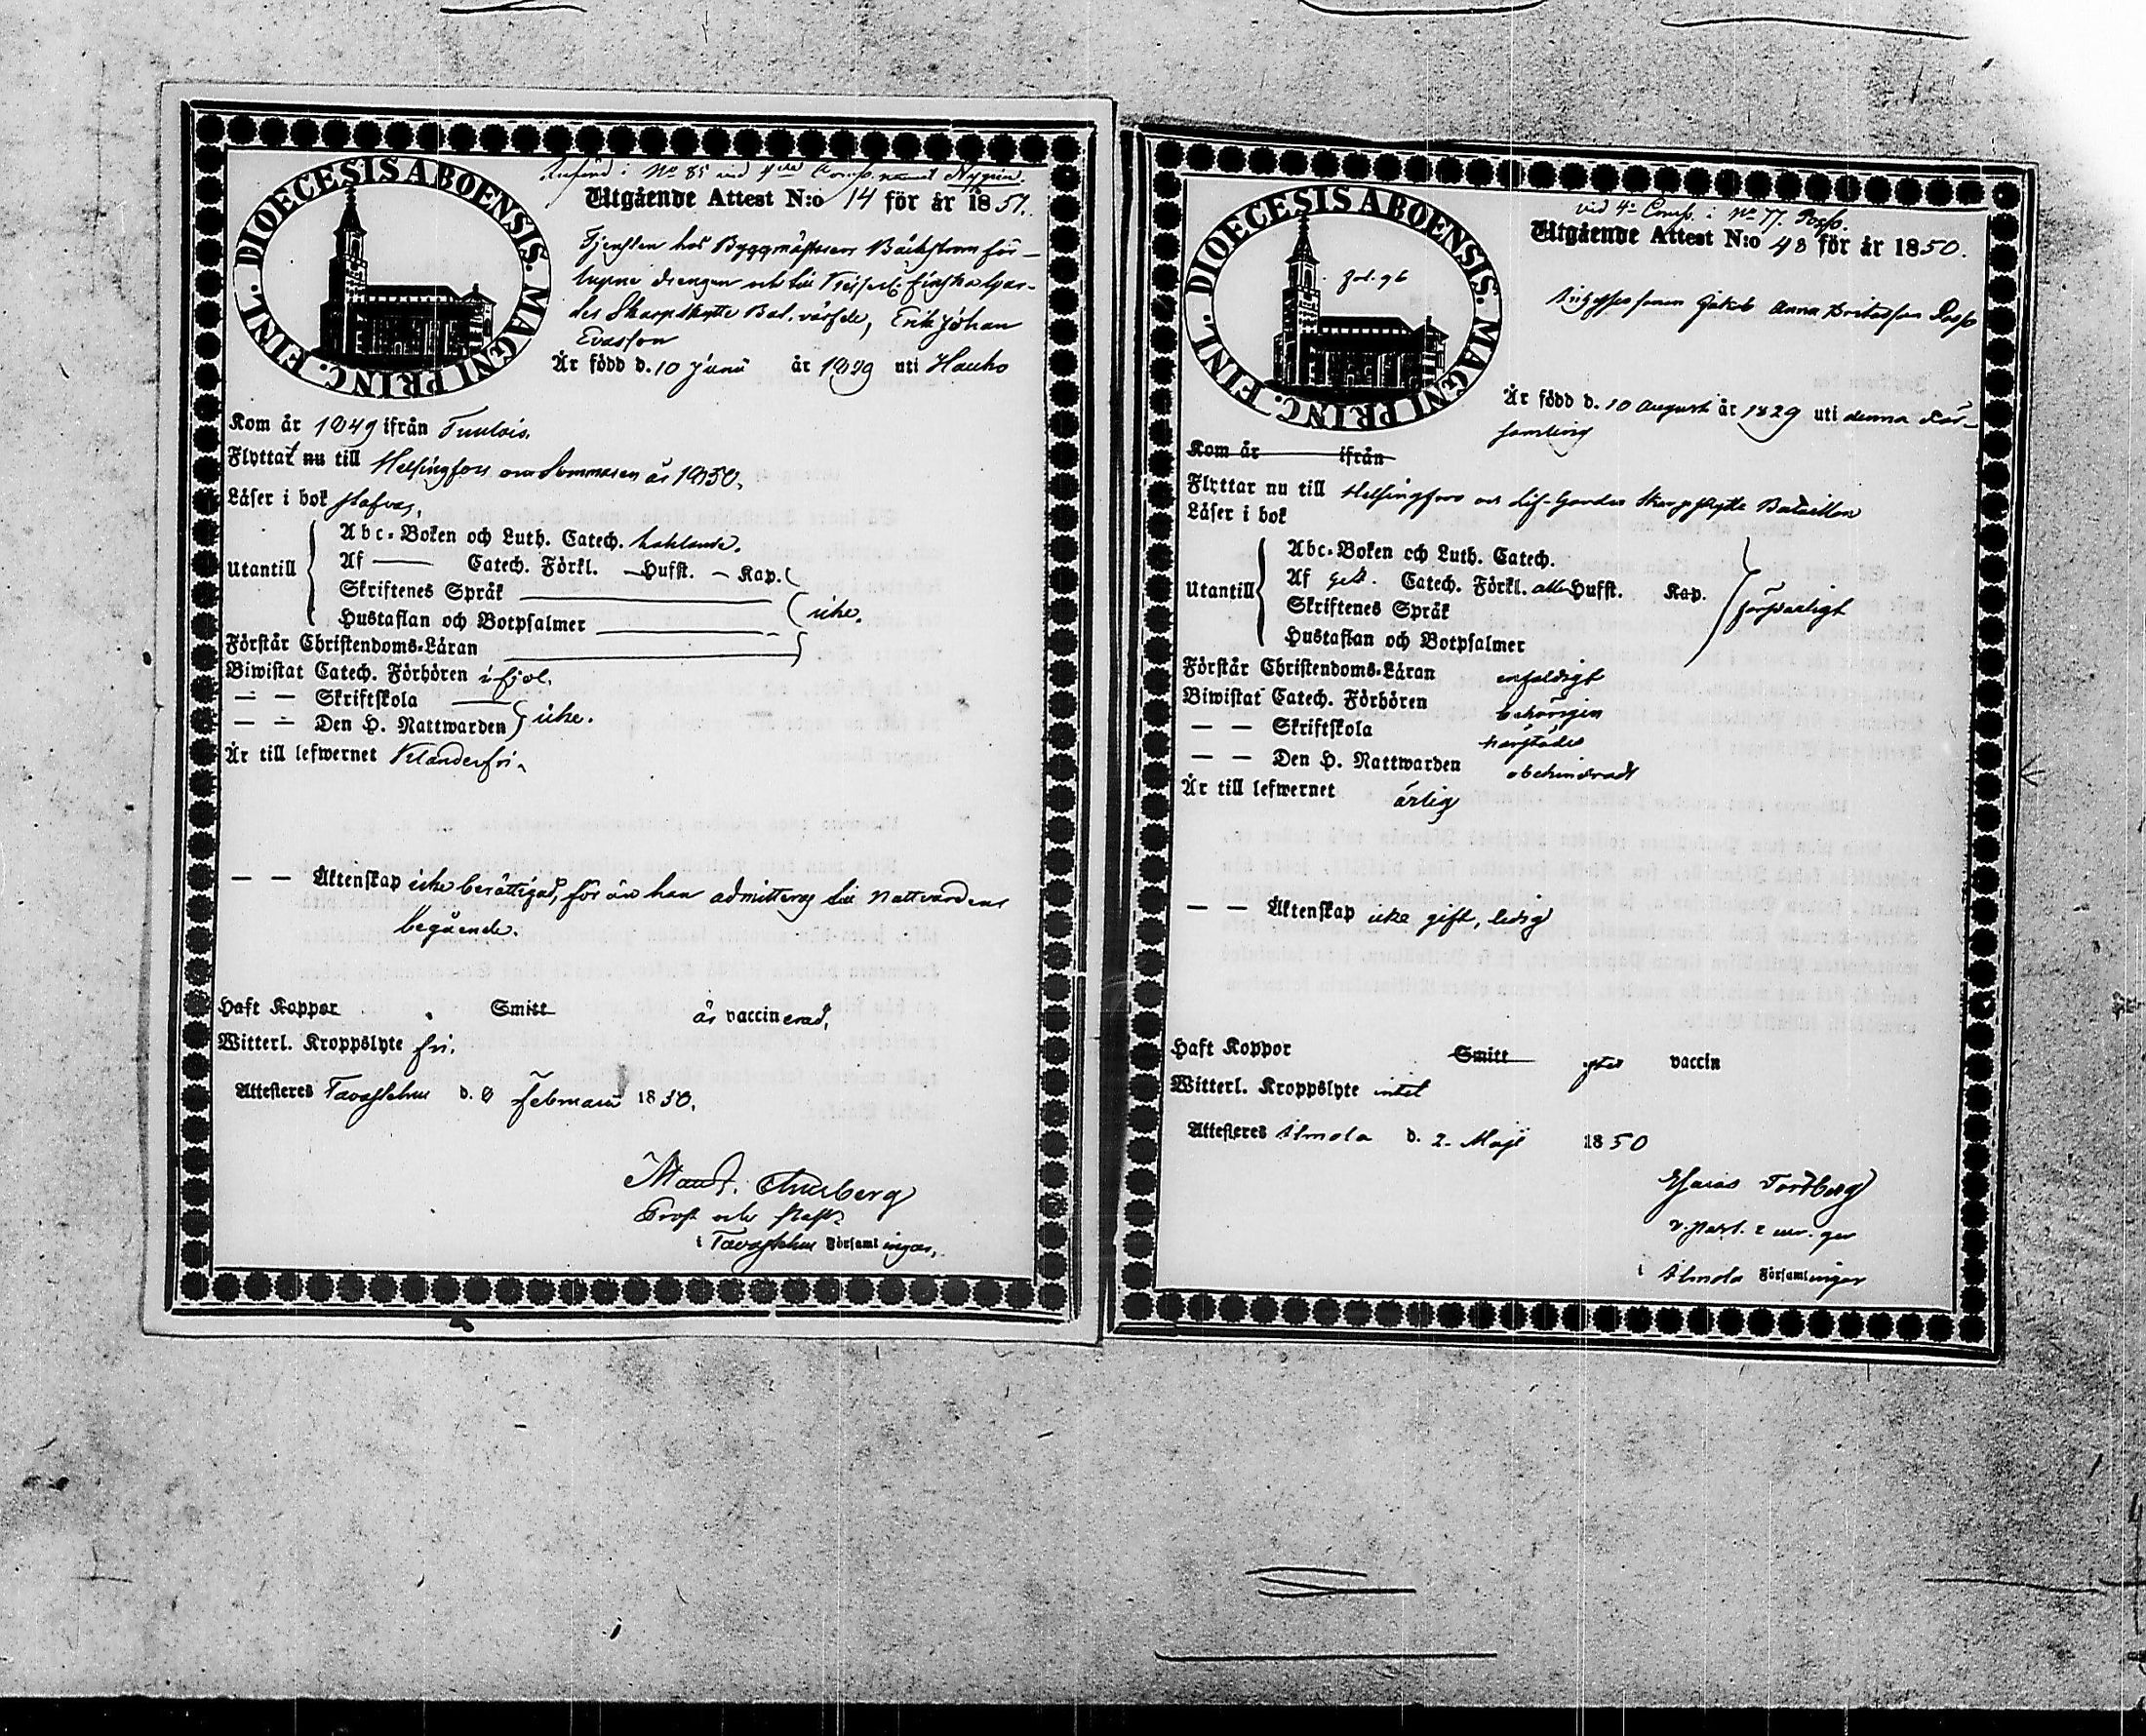 DIOECESIS ABOENSIS. MAGNI PRINC. FINL.
i No 85 vid Comp. namnt Nygren.
Utgående Attest N:o 14 för år 1851.
Tjensten hos Byggmästaren Bäckström för-
drengen och till Keiserl. Finska Gar-
des Skarpskytte Bat. värfde, Erik Johan
Evasson
Är född d. 10 Junii år 1829 uti Hauho
Kom år 1849 ifrån Tuulois.
Flyttat nu till Helsingfors om Sommaren år 1850.
Läser i bok stafvar,
Utantill
Abc-Boken och Luth. Catech. haklande.
Af — Catech. Förkl. — Hufst. — Kap.
Skriftenes Språk
Hustaflan och Botpsalmer
icke.
Förstår Christendoms-Läran
Biwistat Catech. Förhören i fjol.
— — Skriftskola
— — Den H. Nattwarden icke.
Är till lefwernet Klanderfri.
— — Äktenskap icke berättigad, för än han admitteras till Nattvardens
begående.
Haft Koppor Smitt är vaccinerad,
Witterl. Kroppslyte fri.
Attesteres Tavastehus d. 8 Februarii 1850.
Prost och
i Tavastehus Församlingar.
DIOECESIS ABOENSIS. MAGNI PRINC. FINL.
fol. 96
vid 4 Comp. i No 77. Poss.
Utgående Attest N:o 48 för år 1850.
Jakob Anna Britasson Poss
Är född d. 10 Augusti år 1829 uti denna För-
samling
Kom år ifrån
Flyttar nu till Helsingfors och Lif-Gardes Skarpskytte Bataillon
Läser i bok
Utantill
Abc-Boken och Luth. Catech.
Af Catech. Förkl. alla Hufst. Kap.
Skriftenes Språk
Hustaflan och Botpsalmer
försvarligt
Förstår Christendoms-Läran enfaldigt
Biwistat Catech. Förhören behörigen
— — Skriftskola härstädes
— — Den H. Nattwarden obehindradt
Är till lefwernet ärlig
— — Äktenskap icke gift, ledig
Haft Koppor Smitt vaccin
Witterl. Kroppslyte intet
Attesteres Ilmola d. 2. Maji 1850
Esaias Tordberg
i Ilmola Församlingar